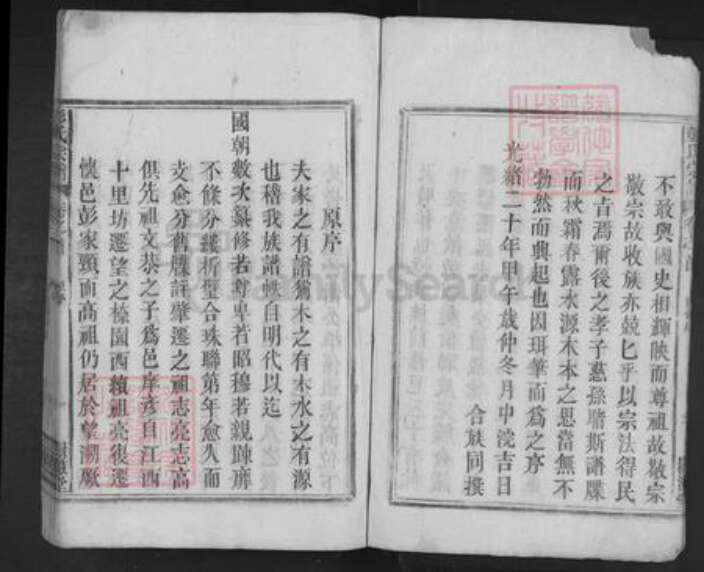 不敢與國史相輝映而尊祖故敬宗
敬宗故收族亦兢匕乎以宗法得民
之旨焉爾後之孝子慈孫睹斯譜牒
而秋霜春露水源木本之思當無不
勃然而興起也因珥筆而爲之序
光緒二十年甲午歲仲冬月中浣吉日
合族同撰
原序
夫家之有譜猶木之有本水之有源
也稽我族譜帙自明代以迄
國朝數次纂修若尊卑若昭穆若親踈靡
不條分縷析璧合珠聯第年愈久而
支愈分舊牒詳肇遷之祖志亮志高
俱先祖文恭之子爲邑庠彥自江西
十里坊遷望之檪園西績祖亮復遷
懷邑彭家頸而高祖仍居於望潮厥
FamilySearch